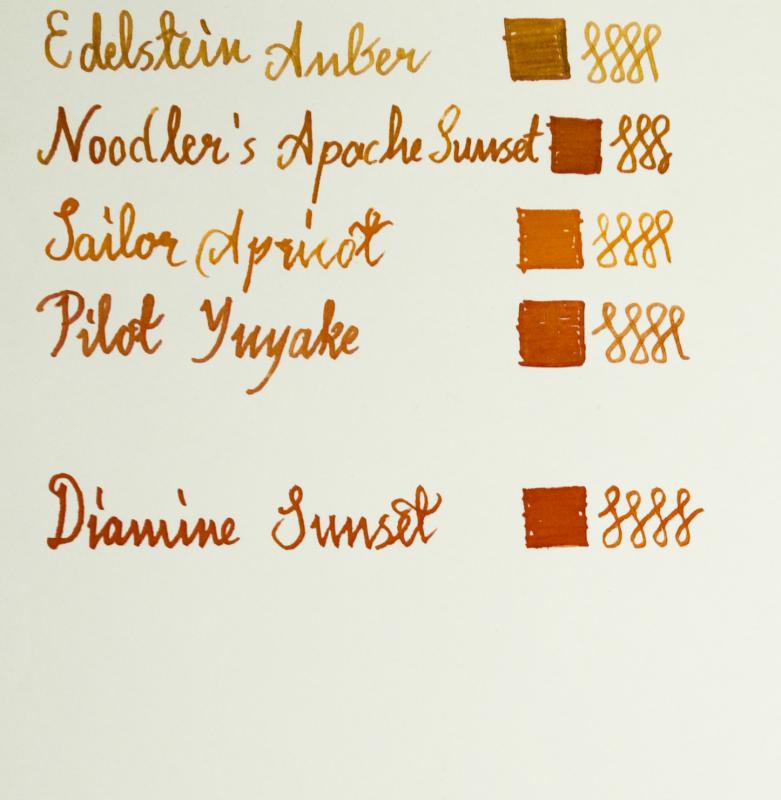 Edelstein Amber
Noodler's Apache Sunset
Sailor Apricot
Pilot Yuyake
Diamine Sunset